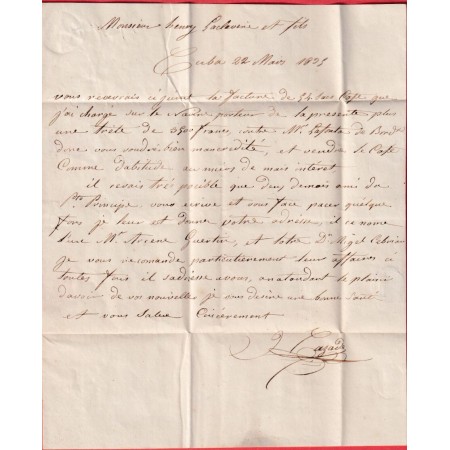 Monsieur henry et fils
Cuba 22 Mars 1835
vous recevrais ci joint la facture de 54 sacs Café que
j'ai chargé sur le Navire porteur de la presente plus
une traite de francs, contre Mr. de Bordx
dont vous voudrais bien mancredité, et vendre le Café
Comme d'abitude au de mais interet
il serais tré posible que deux de mais ami du
Pto Principe, vous ecrive et vous face pacer quelque
fons je leur est donné votre adresse, il se nome
l'une Mr. Arcene Guertin, et l'otre Dn Migel
je vous recomande particulierement leur affaires si
toutes fois il sadresse a vous, an atandent le plaisir
d'avoir de vos nouvelle je vous desire une bonne santé
et vous Salue Cincèrement